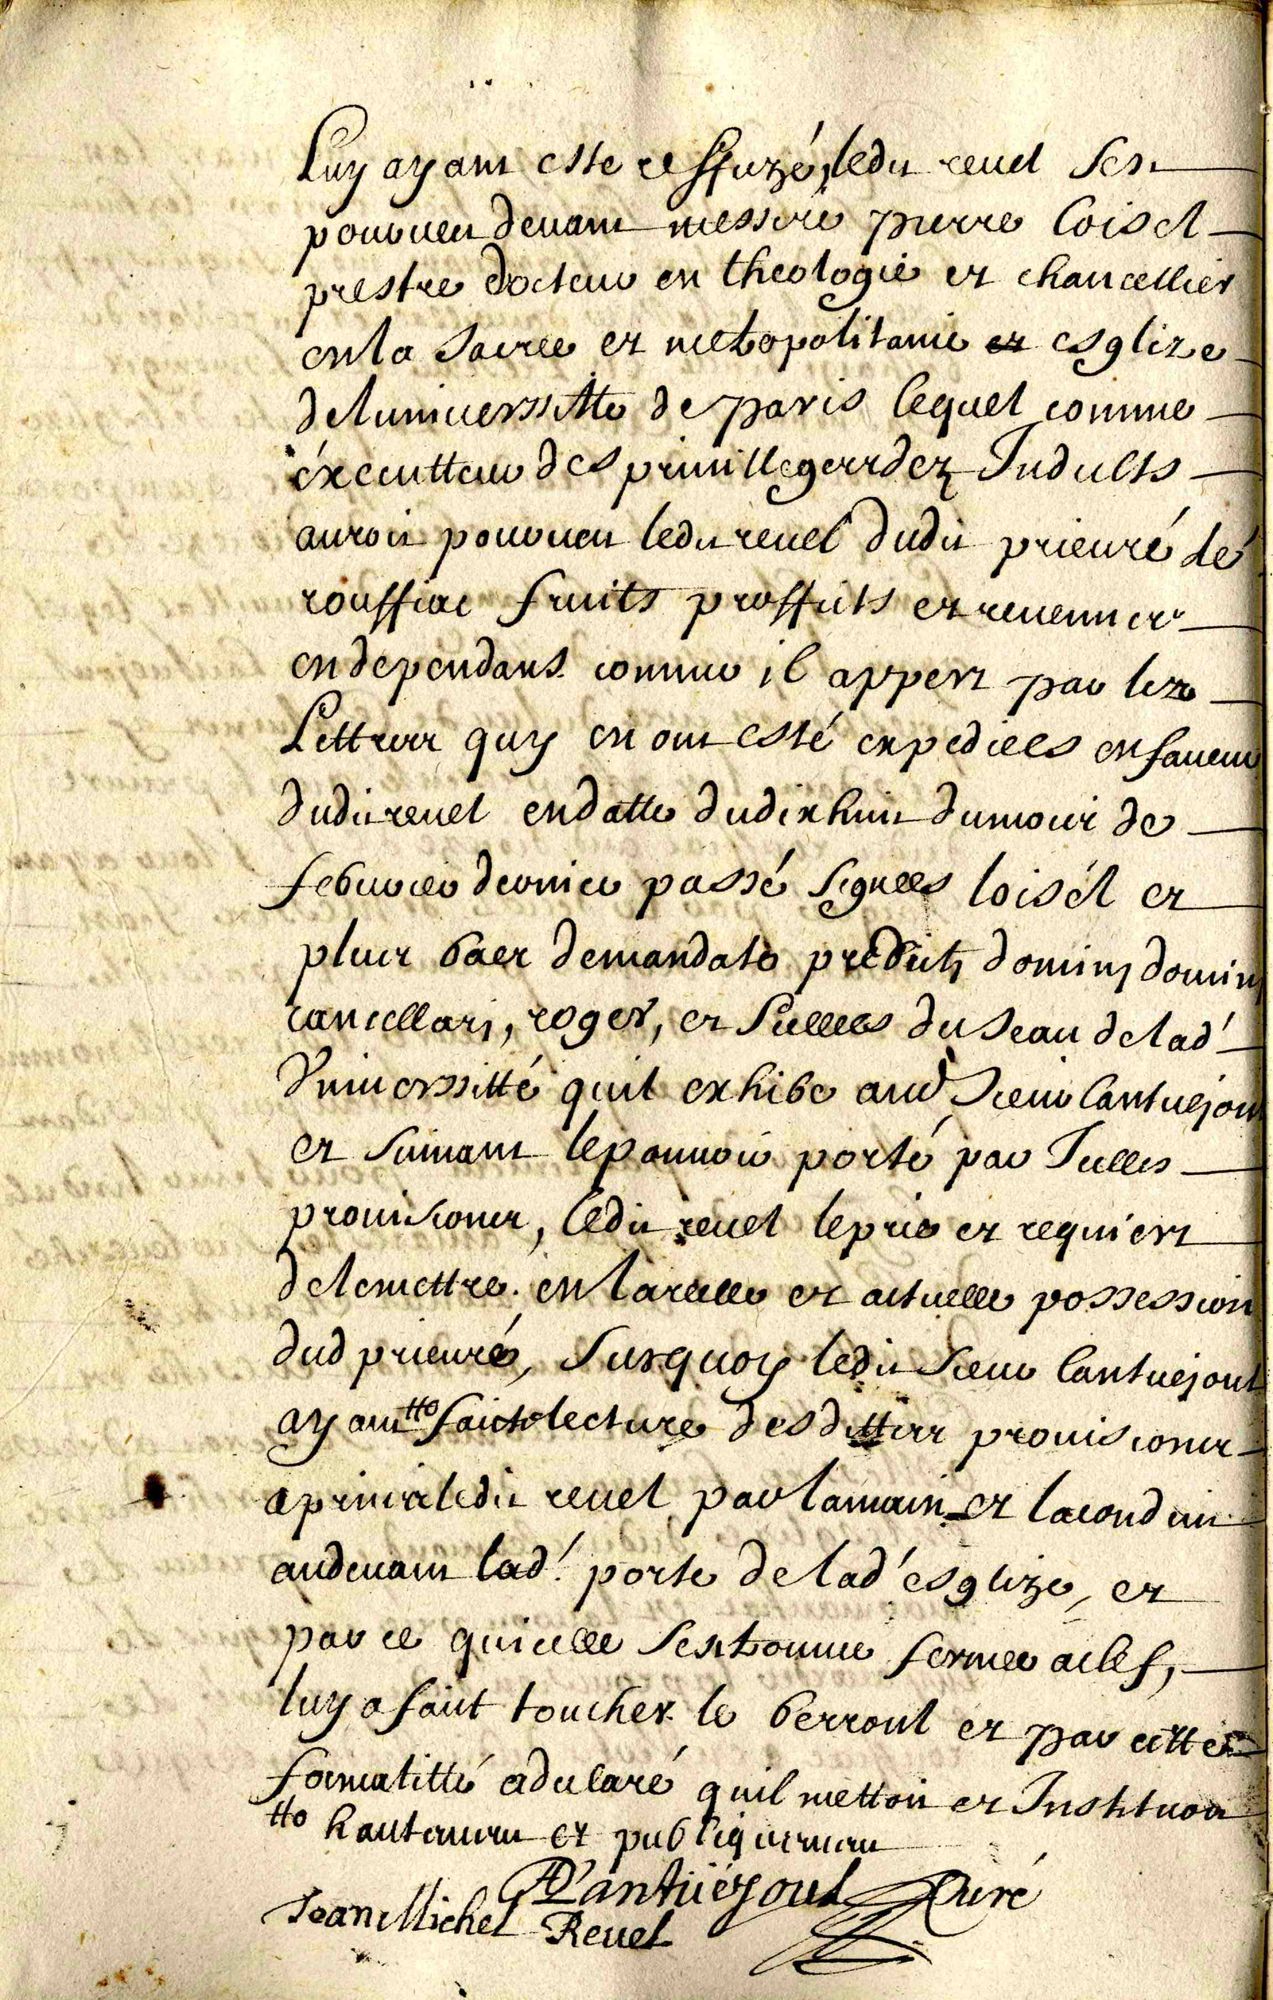 Luy ayant esté reffuzé, ledit revel sest
pourveu devant messire pierre loisel
prestre docteur en theologie et chancellier
en la sacree et metropolitaine et esglize
de luniverssitté de paris lequel comme
éxecutteur des privilleges et dez Indults
auroit pourveu ledit revel dudit prieuré de
rouffiac fruits proffits et revennus
en dependans comme il appert par lez
Lettres quy en ont esté expediees en faveur
dudit revel en datte du dix huit du mois de
febvrier dernier passé signees loisél et
plus bas de mandato prédicti domini domini
cancellarij, roger, et sellees du seau de lad'
Universsitté quil exhibe aud sieur lantuejoul
et suivant le pouvoir porté par Icelles
provisions, ledit revel le prie et requiert
de le mettre en la réelle et actuelle possession
dud prieuré, surquoy ledit sieur lantuejoul
ayant tto faict lecture desdittes provisions
a prins ledit revel par la main et la conduit
au devant lad'. porte de lad' esglize, et
par ce quicelle sest trouvée fermée a clef,
luy a fait toucher le berroul et par cette
formalitté a declaré quil mettoit et Instituoit
tto hautement et publiquement
Lantuéjoul Curé
Jean Michel Revel